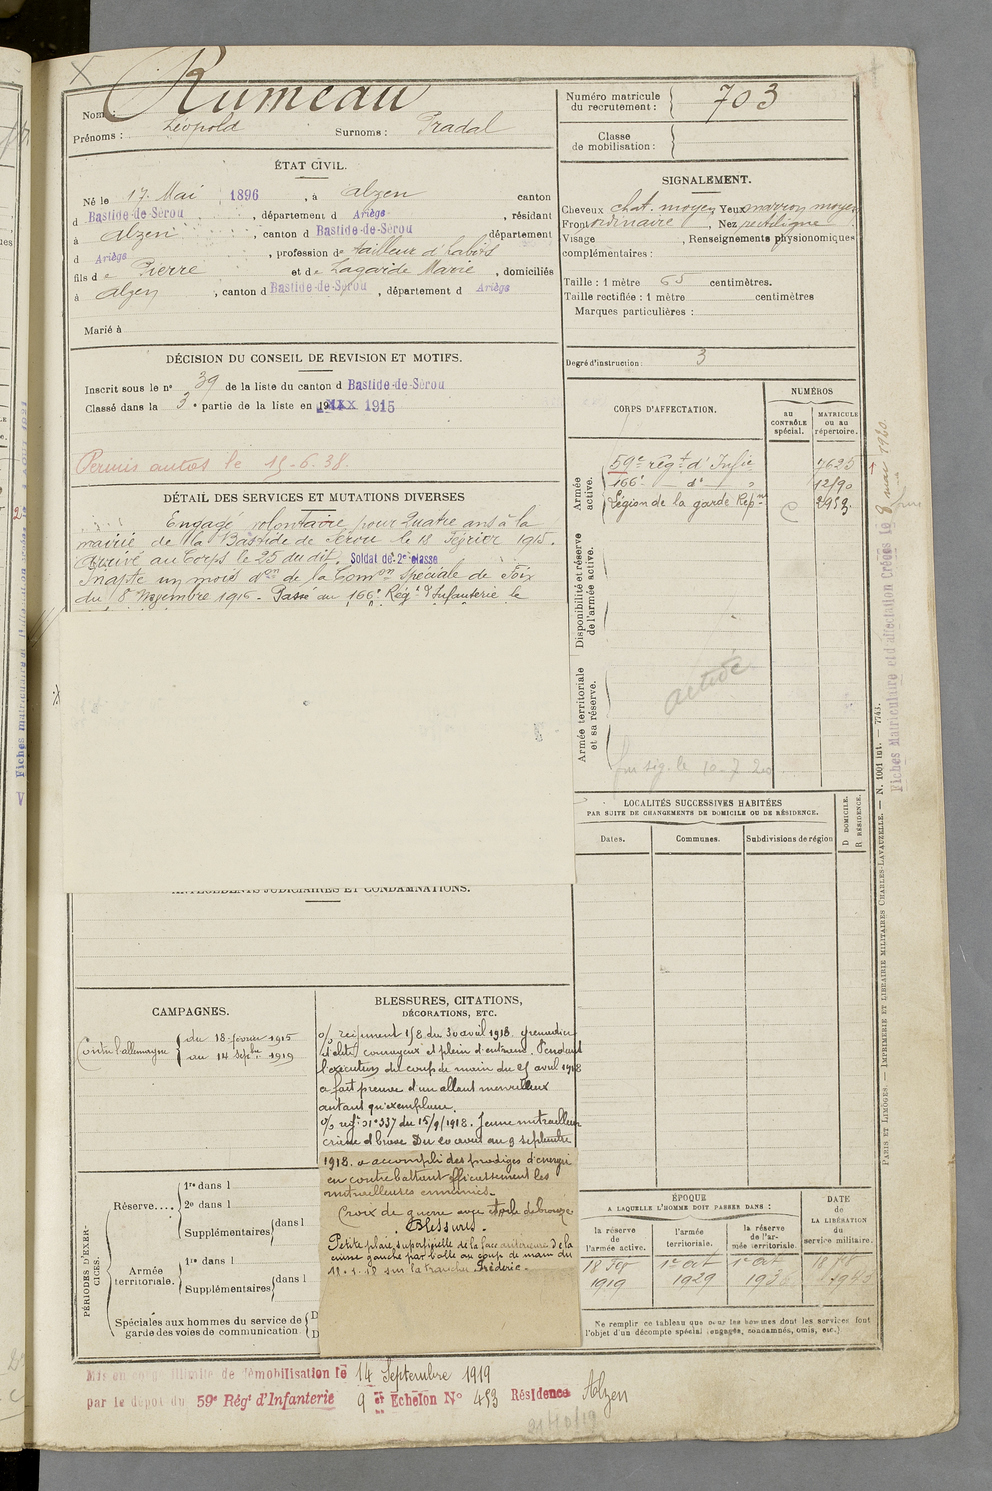 Nom : Rumeau
Prénoms : Léopold Surnoms : Pradal
Numéro matricule du recrutement : 703
Classe de mobilisation :
ÉTAT CIVIL.
Né le 17 Mai 1896, à Alzen canton
d Bastide-de-Sérou, département d Ariège, résidant
à Alzen, canton d Bastide-de-Sérou département
d Ariège, profession de tailleur d'habits
fils de Pierre et de Lagarde Marie, domiciliés
à Alzen, canton d Bastide-de-Sérou, département d Ariège
Marié à
SIGNALEMENT.
Cheveux chat. moyen Yeux marron moyen
Front ordinaire, Nez rectiligne
Visage , Renseignements physionomiques
complémentaires :
Taille : 1 mètre 65 centimètres.
Taille rectifiée : 1 mètre centimètres
Marques particulières :
Degré d'instruction : 3
DÉCISION DU CONSEIL DE REVISION ET MOTIFS.
Inscrit sous le n° 39 de la liste du canton d Bastide-de-Sérou
Classé dans la 3e partie de la liste en 1915
Permis autos le 15-6.38.
DÉTAIL DES SERVICES ET MUTATIONS DIVERSES
Engagé volontaire pour Quatre ans à la
mairie de la Bastide de Sérou le 18 Février 1915.
Arrivé au Corps le 25 du dit. Soldat de 2e classe
Inapte un mois don de la Comon Spéciale de Foix
du 8 Novembre 1916. Passé au 166e Régt d'Infanterie le
CORPS D'AFFECTATION.
NUMÉROS
au CONTRÔLE spécial.
MATRICULE ou au répertoire.
Armée active.
59e régt d'Infie 7625
166e do 12190
Légion de la garde Repne
Disponibilité et réserve de l'armée active.
Armée territoriale et sa réserve.
active
sig. le 10-7 20
LOCALITÉS SUCCESSIVES HABITÉES
PAR SUITE DE CHANGEMENTS DE DOMICILE OU DE RÉSIDENCE.
Dates. Communes. Subdivisions de région
D DOMICILE.
R RÉSIDENCE.
ANTÉCÉDENTS JUDICIAIRES ET CONDAMNATIONS.
CAMPAGNES.
Contre l'allemagne du 18 février 1915
au 14 Septbre 1919
BLESSURES, CITATIONS,
DÉCORATIONS, ETC.
O/ régiment 158 du 30 avril 1918. Grenadier
d'élite courageux et plein d'entrain. Pendant
l'exécution du coup de main du 25 avril 1918
a fait preuve d'un allant merveilleux
autant qu'exemplaire.
O/ régt n° 337 du 15/9/1918. Jeune mitrailleur
crâne et brave. Du 20 août au 9 septembre
1918. a accompli des prodiges d'énergie
en contrebattant efficacement les
mitrailleuses ennemies.
Croix de guerre avec étoile de bronze
Blessures.
Petite plaie superficielle de la face antérieure de la
cuisse gauche par balle au coup de main du
sur la tranchée Fréderic.
PÉRIODES D'EXERCICES.
Réserve....
1re dans l
2e dans l
Supplémentaires dans l
Armée territoriale.
1re dans l
Supplémentaires dans l
Spéciales aux hommes du service de
garde des voies de communication
D
D
ÉPOQUE
A LAQUELLE L'HOMME DOIT PASSER DANS :
la réserve de l'armée active.
l'armée territoriale.
la réserve de l'armée territoriale.
DATE DE LA LIBÉRATION du service militaire.
18 Fév 1919
1er Oct 1929
1er Oct
Ne remplir ce tableau que pour les hommes dont les services font
l'objet d'un décompte spécial (engagés, condamnés, omis, etc.)
Mis en congé illimité de démobilisation le 14 Septembre 1919
par le dépôt du 59e Régt d'Infanterie 9e Echelon N° 453 Résidence Alzen
21/10/19
Fiches Matriculaire et d'affectation Créées le 8 mai 1920.
PARIS ET LIMOGES. — IMPRIMERIE ET LIBRAIRIE MILITAIRES CHARLES-LAVAUZELLE. — N. 1001 int. — 7743.